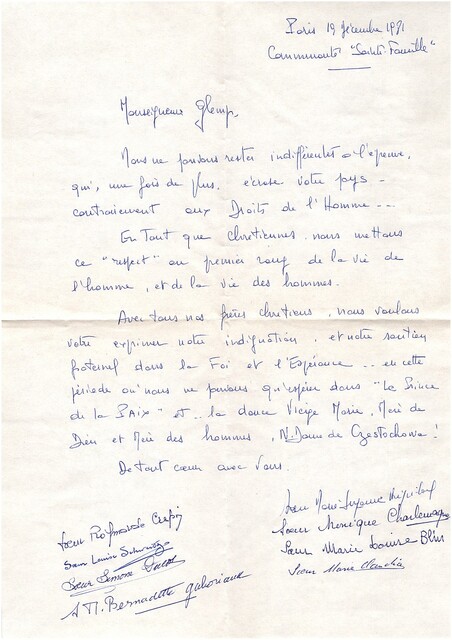 Paris 19 décembre 1981
Communauté "Sainte Famille"
Monseigneur Glemp,
Nous ne pouvons rester indifférentes à l'épreuve,
qui, une fois de plus, écrase votre pays -
contrairement aux Droits de l'Homme --
En tant que chrétiennes, nous mettons
ce "respect" au premier rang de la vie de
l'homme, et de la vie des hommes.
Avec tous nos frères chrétiens, nous voulons
vous exprimer notre indignation, et notre soutien
fraternel dans la Foi et l'Espérance -- en cette
période où nous ne pouvons qu'espérer dans "Le Prince
de la PAIX" et .. la douce Vierge Marie, Mère de
Dieu et Mère des hommes, N. Dame de Czestochowa !
De tout cœur avec Vous.
Soeur Marie Suzanne
Soeur Monique Charlemagne
Soeur Marie Louise Blin
Soeur Marie
Soeur
Soeur Louise
Soeur Simone
Bernadette